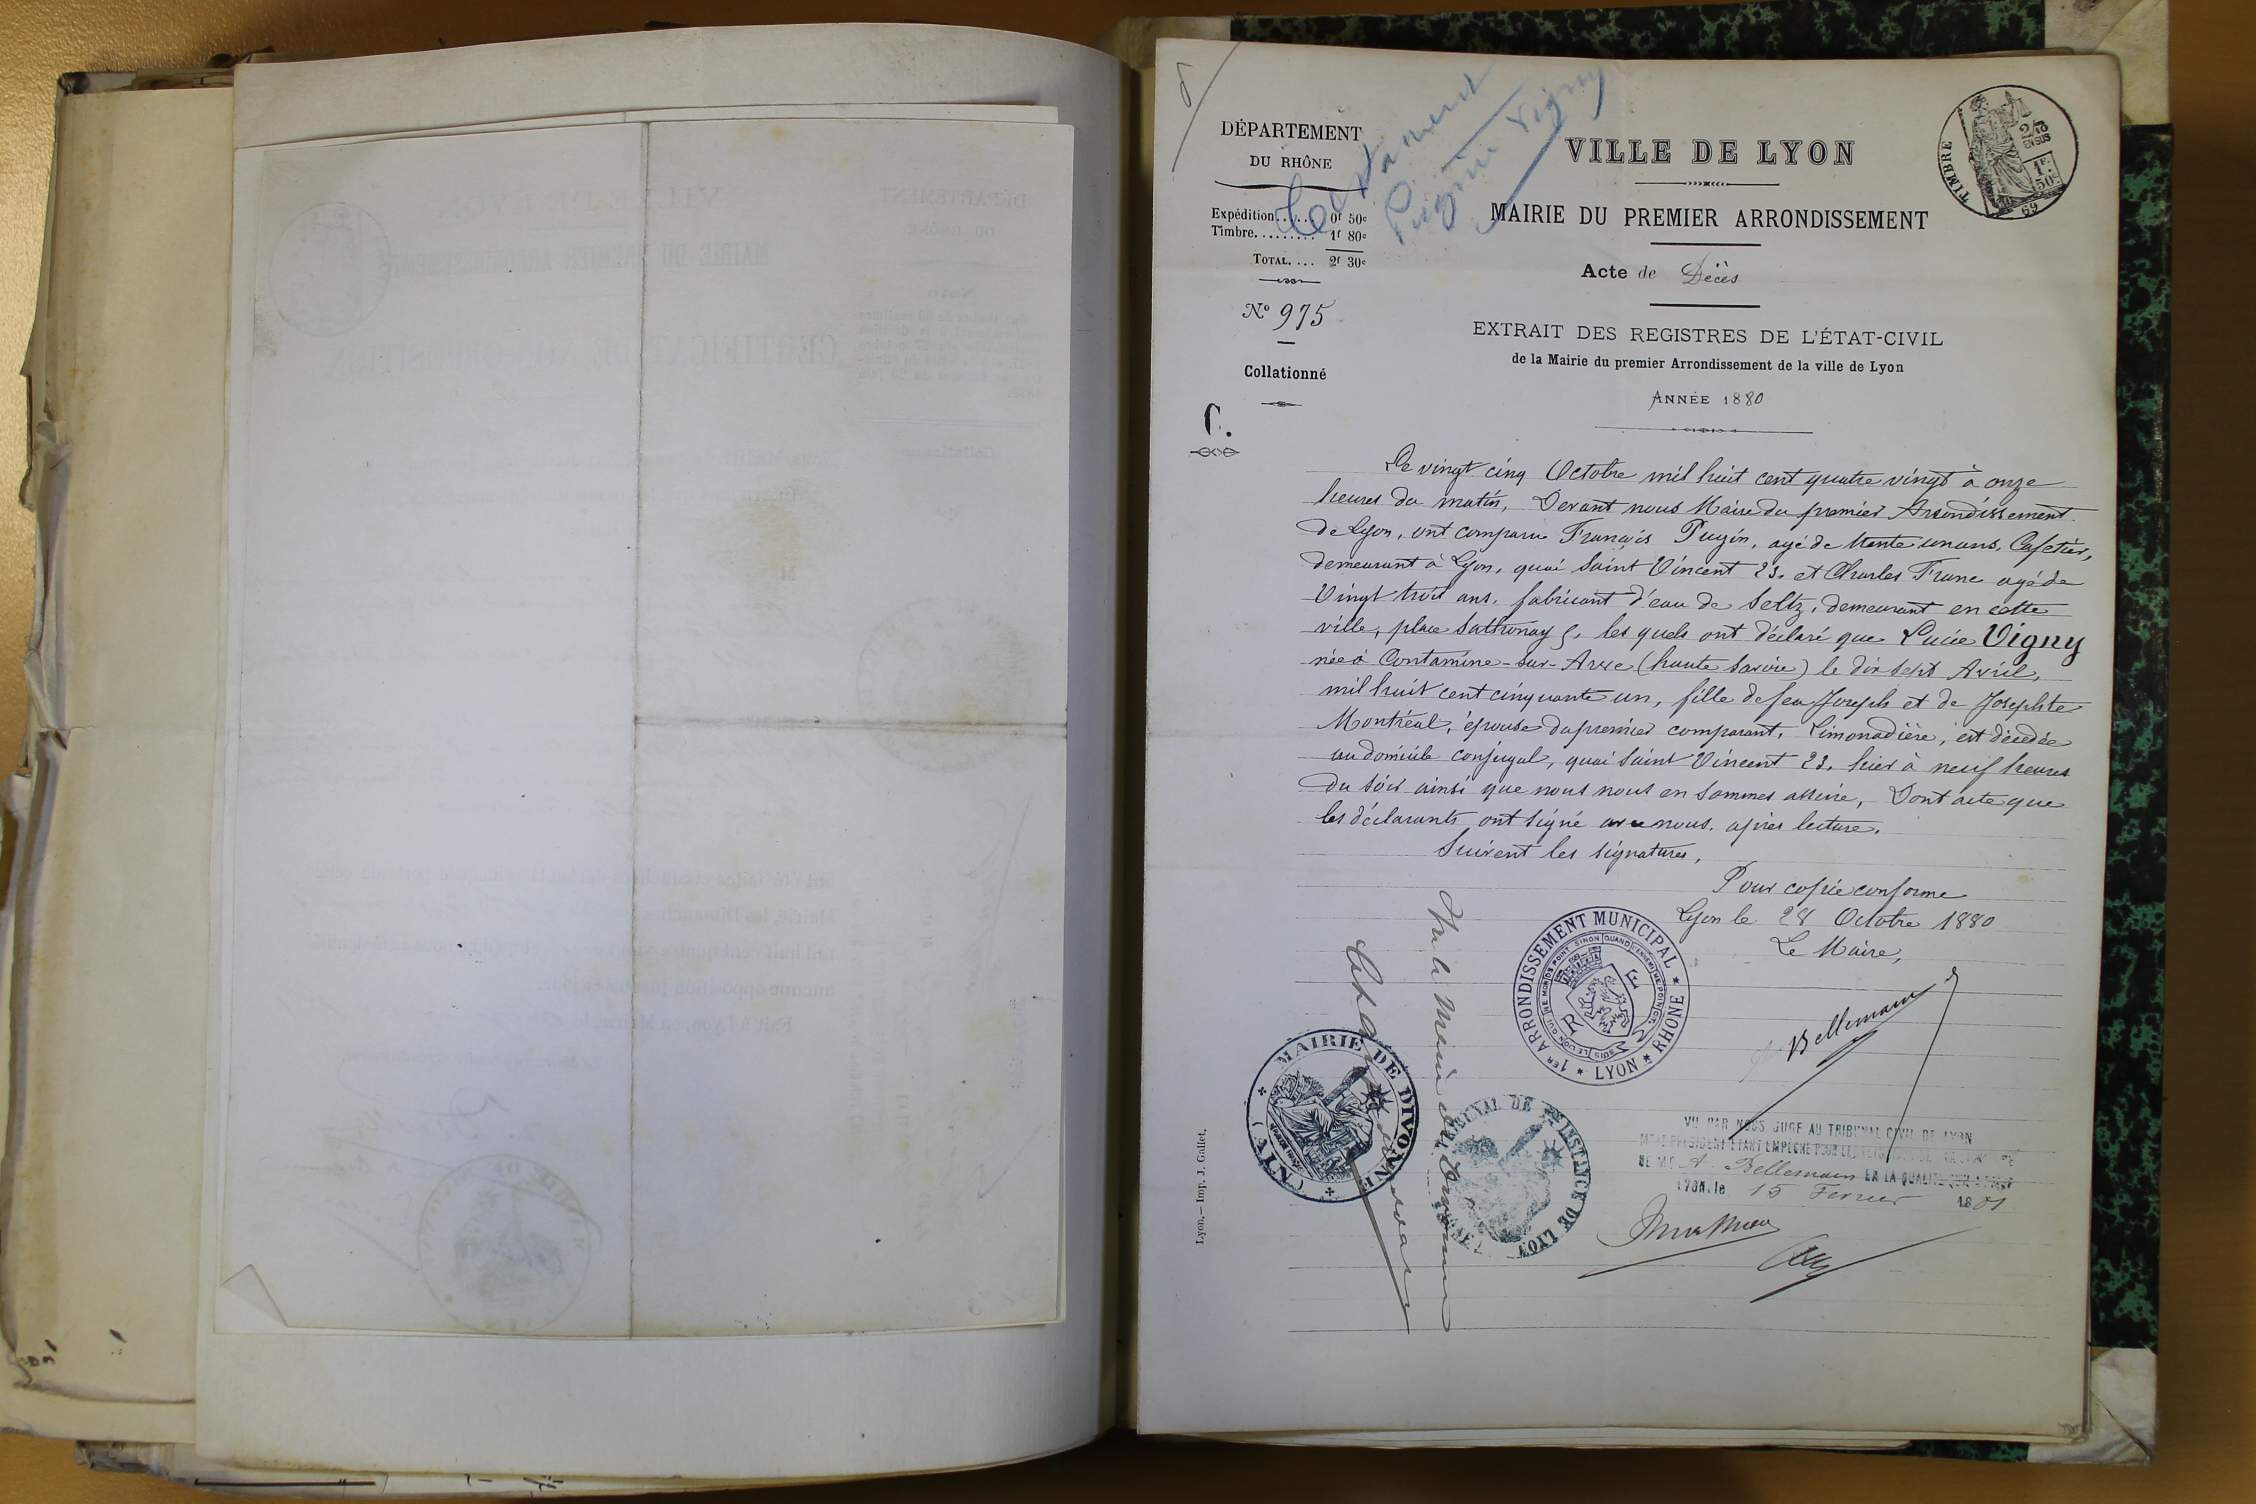 DÉPARTEMENT
DU RHÔNE
Expédition...... 0f 50c
Timbre......... 1f 80c
TOTAL.... 2f 30c
No 975
Collationné
C.
Puguin Vigny
VILLE DE LYON
MAIRIE DU PREMIER ARRONDISSEMENT
Acte de Décès
EXTRAIT DES REGISTRES DE L'ÉTAT-CIVIL
de la Mairie du premier Arrondissement de la ville de Lyon
ANNÉE 1880
TIMBRE
2/10
EN SUS
1F.
50c
69
Le vingt cinq Octobre mil huit cent quatre vingt à onze
heures du matin, Devant nous Maire du premier Arrondissement
de Lyon, ont comparu François Pugin, agé de trente un ans, Cafetier,
demeurant à Lyon, quai Saint Vincent 23, et Charles Franc agé de
Vingt trois ans, fabricant d'eau de Seltz, demeurant en cette
ville, place Sathonay 5, les quels ont déclaré que Lucie Vigny
née à Contamine-sur-Arve (haute Savoie) le dix sept Avril
mil huit cent cinquante un, fille de feu Joseph et de Josephte
Montréal, épouse du premier comparant, Limonadière, est décédée
au domicile conjugal, quai Saint Vincent 23, hier à neuf heures
du soir ainsi que nous nous en sommes assuré, Dont acte que
les déclarants ont signé avec nous, après lecture.
Suivent les signatures,
Pour copie conforme
Lyon le 28 Octobre 1880
Le Maire,
Bellemain
1ER ARRONDISSEMENT MUNICIPAL * RHONE * LYON *
MAIRIE DE DIVONNE (AIN)
Vu à la Mairie de Divonne
TRIBUNAL DE 1ère INSTANCE DE LYON
VU PAR NOUS JUGE AU TRIBUNAL CIVIL DE LYON
DE Mr A. Bellemain EN LA QUALITÉ
LYON, le 15 Fevrier 1881
Lyon.— Imp. J. Gallet.